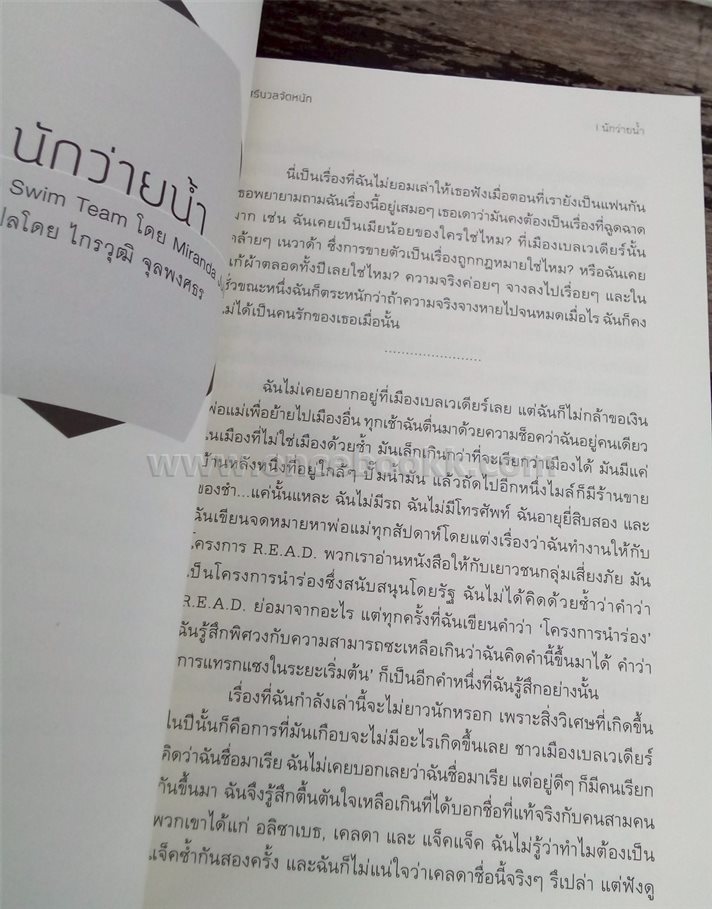 นักว่ายน้ำ
Swim Team โดย Miranda
ไกรวุฒิ จุลพงศธร
| นักว่ายน้ำ
นี่เป็นเรื่องที่ฉันไม่ยอมเล่าให้เธอฟังเมื่อตอนที่เรายังเป็นแฟนกัน
เธอพยายามถามฉันเรื่องนี้อยู่เสมอๆ เธอเดาว่ามันคงต้องเป็นเรื่องที่ฉูดฉาด
มาก เช่น ฉันเคยเป็นเมียน้อยของใครใช่ไหม? ที่เมืองเบลเวเดียร์นั้น
คล้ายๆ เนวาด้า ซึ่งการขายตัวเป็นเรื่องถูกกฎหมายใช่ไหม? หรือฉันเคย
แก้ผ้าตลอดทั้งปีเลยใช่ไหม? ความจริงค่อยๆ จางลงไปเรื่อยๆ และใน
ชั่วขณะหนึ่งฉันก็ตระหนักว่าถ้าความจริงจางหายไปจนหมดเมื่อไร ฉันก็คง
ไม่ได้เป็นคนรักของเธอเมื่อนั้น
.......................
ฉันไม่เคยอยากอยู่ที่เมืองเบลเวเดียร์เลย แต่ฉันก็ไม่กล้าขอเงิน
พ่อแม่เพื่อย้ายไปเมืองอื่น ทุกเช้าฉันตื่นมาด้วยความช็อคว่าฉันอยู่คนเดียว
ในเมืองที่ไม่ใช่เมืองด้วยซ้ำ มันเล็กเกินกว่าที่จะเรียกว่าเมืองได้ มันมีแค่
บ้านหลังหนึ่งที่อยู่ใกล้ๆ ปั๊มน้ำมัน แล้วถัดไปอีกหนึ่งไมล์ก็มีร้านขาย
ของชำ...แค่นั้นแหละ ฉันไม่มีรถ ฉันไม่มีโทรศัพท์ ฉันอายุยี่สิบสอง และ
ฉันเขียนจดหมายหาพ่อแม่ทุกสัปดาห์โดยแต่งเรื่องว่าฉันทำงานให้กับ
โครงการ R.E.A.D. พวกเราอ่านหนังสือให้กับเยาวชนกลุ่มเสี่ยงภัย มัน
เป็นโครงการนำร่องซึ่งสนับสนุนโดยรัฐ ฉันไม่ได้คิดด้วยซ้ำว่าคำว่า
R.E.A.D. ย่อมาจากอะไร แต่ทุกครั้งที่ฉันเขียนคำว่า ‘โครงการนำร่อง’
ฉันรู้สึกพิศวงกับความสามารถซะเหลือเกินว่าฉันคิดคำนี้ขึ้นมาได้ คำว่า
การแทรกแซงในระยะเริ่มต้น’ ก็เป็นอีกคำหนึ่งที่ฉันรู้สึกอย่างนั้น
เรื่องที่ฉันกำลังเล่านี้จะไม่ยาวนักหรอก เพราะสิ่งวิเศษที่เกิดขึ้น
ในปีนั้นก็คือการที่มันเกือบจะไม่มีอะไรเกิดขึ้นเลย ชาวเมืองเบลเวเดียร์
คิดว่าฉันชื่อมาเรีย ฉันไม่เคยบอกเลยว่าฉันชื่อมาเรีย แต่อยู่ดีๆ ก็มีคนเรียก
กันขึ้นมา ฉันจึงรู้สึกตื้นตันใจเหลือเกินที่ได้บอกชื่อที่แท้จริงกับคนสามคน
พวกเขาได้แก่ อลิซาเบธ, เคลดา และ แจ็คแจ็ค ฉันไม่รู้ว่าทำไมต้องเป็น
แจ็คซ้ำกันสองครั้ง และฉันก็ไม่แน่ใจว่าเคลดาชื่อนี้จริงๆ รึเปล่า แต่ฟังดู